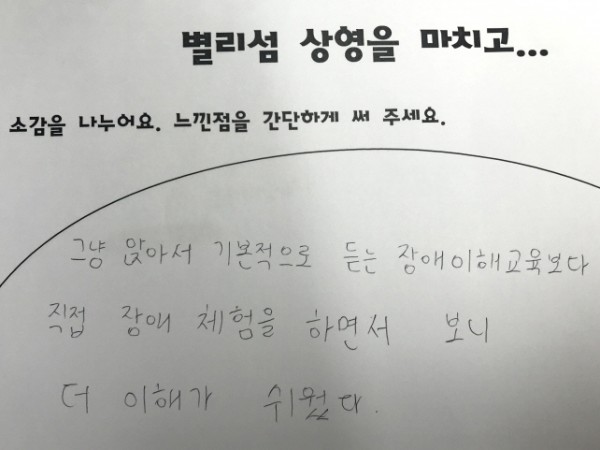 별리섬 상영을 마치고...
소감을 나누어요. 느낀점을 간단하게 써 주세요.
그냥 앉아서 기본적으로 듣는 장애이해교육보다
직접 장애 체험을 하면서 보니
더 이해가 쉬웠다.